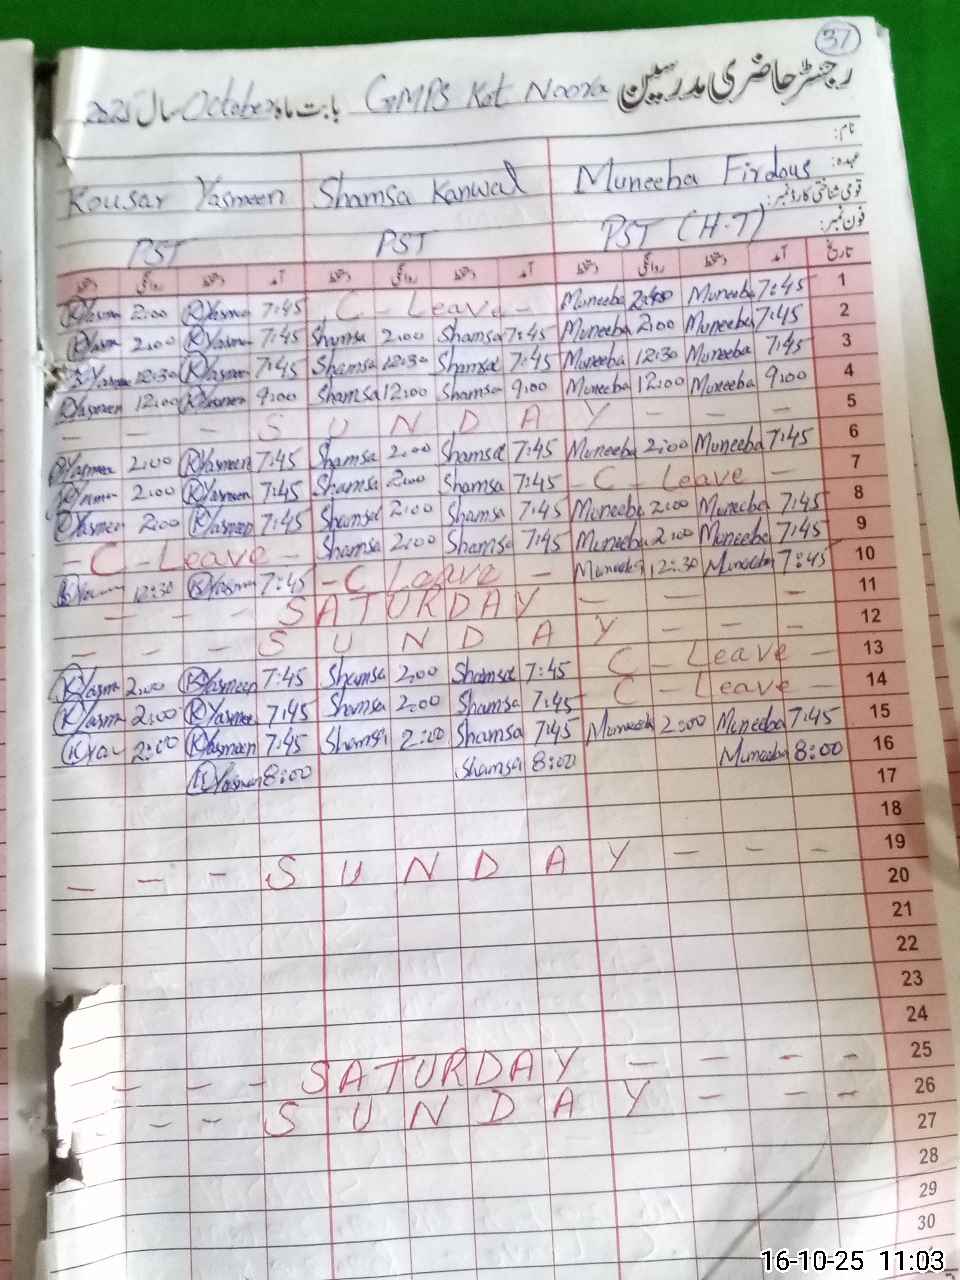 37
رجسٹر حاضری مدرسین GMPS Kot Noora بابت ماہ October سال 2025
نام:
عہدہ:
Kousar Yasmeen Shamsa Kanwal Muneeba Firdous
قومی شناختی کارڈ نمبر:
فون نمبر:
PST PST PST (H.T)
دستخط روانگی دستخط آمد دستخط روانگی دستخط آمد دستخط روانگی دستخط آمد تاریخ
2:00 7:45 C - Leave - Muneeba Muneeba 7:45 1
2:00 7:45 Shamsa 2:00 Shamsa 7:45 Muneeba 2:00 Muneeba 7:45 2
12:30 Yasmeen 7:45 Shamsa 12:30 Shamsa 7:45 Muneeba 12:30 Muneeba 7:45 3
Yasmeen 12:00 9:00 Shamsa 12:00 Shamsa 9:00 Muneeba 12:00 Muneeba 9:00 4
- - - S U N D A Y - - - 5
2:00 Yasmeen 7:45 Shamsa 2:00 Shamsa 7:45 Muneeba 2:00 Muneeba 7:45 6
2:00 Yasmeen 7:45 Shamsa 2:00 Shamsa 7:45 - C - Leave - 7
2:00 Yasmeen 7:45 Shamsa 2:00 Shamsa 7:45 Muneeba 2:00 Muneeba 7:45 8
- C - Leave - Shamsa 2:00 Shamsa 7:45 Muneeba 2:00 Muneeba 7:45 9
12:30 7:45 - C Leave - Muneeba 12:30 Muneeba 7:45 10
- - - SATURDAY - - - 11
- - - S U N D A Y - - - 12
2:00 Yasmeen 7:45 Shamsa 2:00 Shamsa 7:45 C - Leave - 13
2:00 7:45 Shamsa 2:00 Shamsa 7:45 C - Leave - 14
2:00 Yasmeen 7:45 Shamsa 2:00 Shamsa 7:45 Muneeba 2:00 Muneeba 7:45 15
Yasmeen 8:00 Shamsa 8:00 Muneeba 8:00 16
17
18
- - - S U N D A Y - - - 19
20
21
22
23
24
- - - SATURDAY - - - - 25
- - S U N D A Y - - - 26
27
28
29
30
16-10-25 11:03